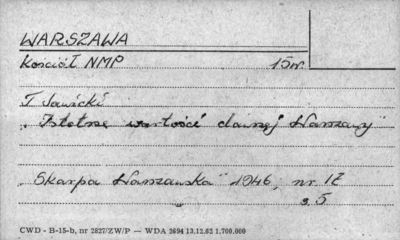 WARSZAWA
Kościół NMP 15 w.
T Sawicki
"Istotne wartości dawnej Warszawy"
"Skarpa Warszawska" 1946, nr 12
s 5
CWD - B-15-b, nr 2827/ZW/P — WDA 3694 13.12.62 1.700.000